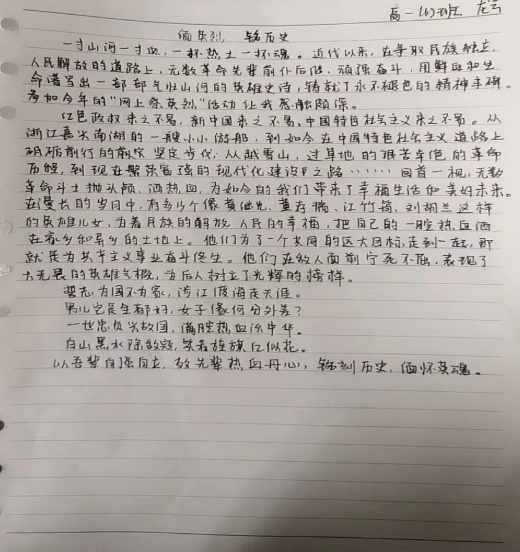 高一(6)班 龙云
缅英烈 铭历史
一寸山河一寸血，一抔热土一抔魂。近代以来，在争取民族独立，
人民解放的道路上，无数革命先辈前仆后继、顽强奋斗，用鲜血和生
命谱写出一部部气壮山河的英雄史诗，铸就了永不褪色的精神丰碑。
参加今年的"网上祭英烈"活动让我感触颇深。
红色政权来之不易，新中国来之不易，中国特色社会主义来之不易。从
浙江嘉兴南湖的一艘小小游船，到如今在中国特色社会主义道路上
砥砺前行的前家坚定步伐；从越雪山，过草地的艰苦卓绝的革命
历程，到现在繁荣富强的现代化建设之路………回首一视，无数
革命斗士抛头颅、洒热血，为如今的我们带来了幸福生活和美好未来。
在漫长的岁月中，有多少个像黄继光、董存瑞、江竹筠、刘胡兰这样
的英雄儿女，为着民族的解放，人民的幸福，把自己的一腔热血洒
在家乡和异乡的土地上。他们为了一个共同的远大目标，走到一起，那
就是为共产主义事业奋斗终生。他们在敌人面前宁死不屈，表现了
大无畏的英雄气概，为后人树立了光辉的榜样。
誓志为国不为家，涉江渡海走天涯。
男儿岂是全都好，女子缘何分外差？
一世忠贞兴故国，满腔热血沃中华。
白山黑水除敌寇，笑看旌旗红似花。
以吾辈自强自立，敬先辈热血丹心，铭刻历史，缅怀英魂。